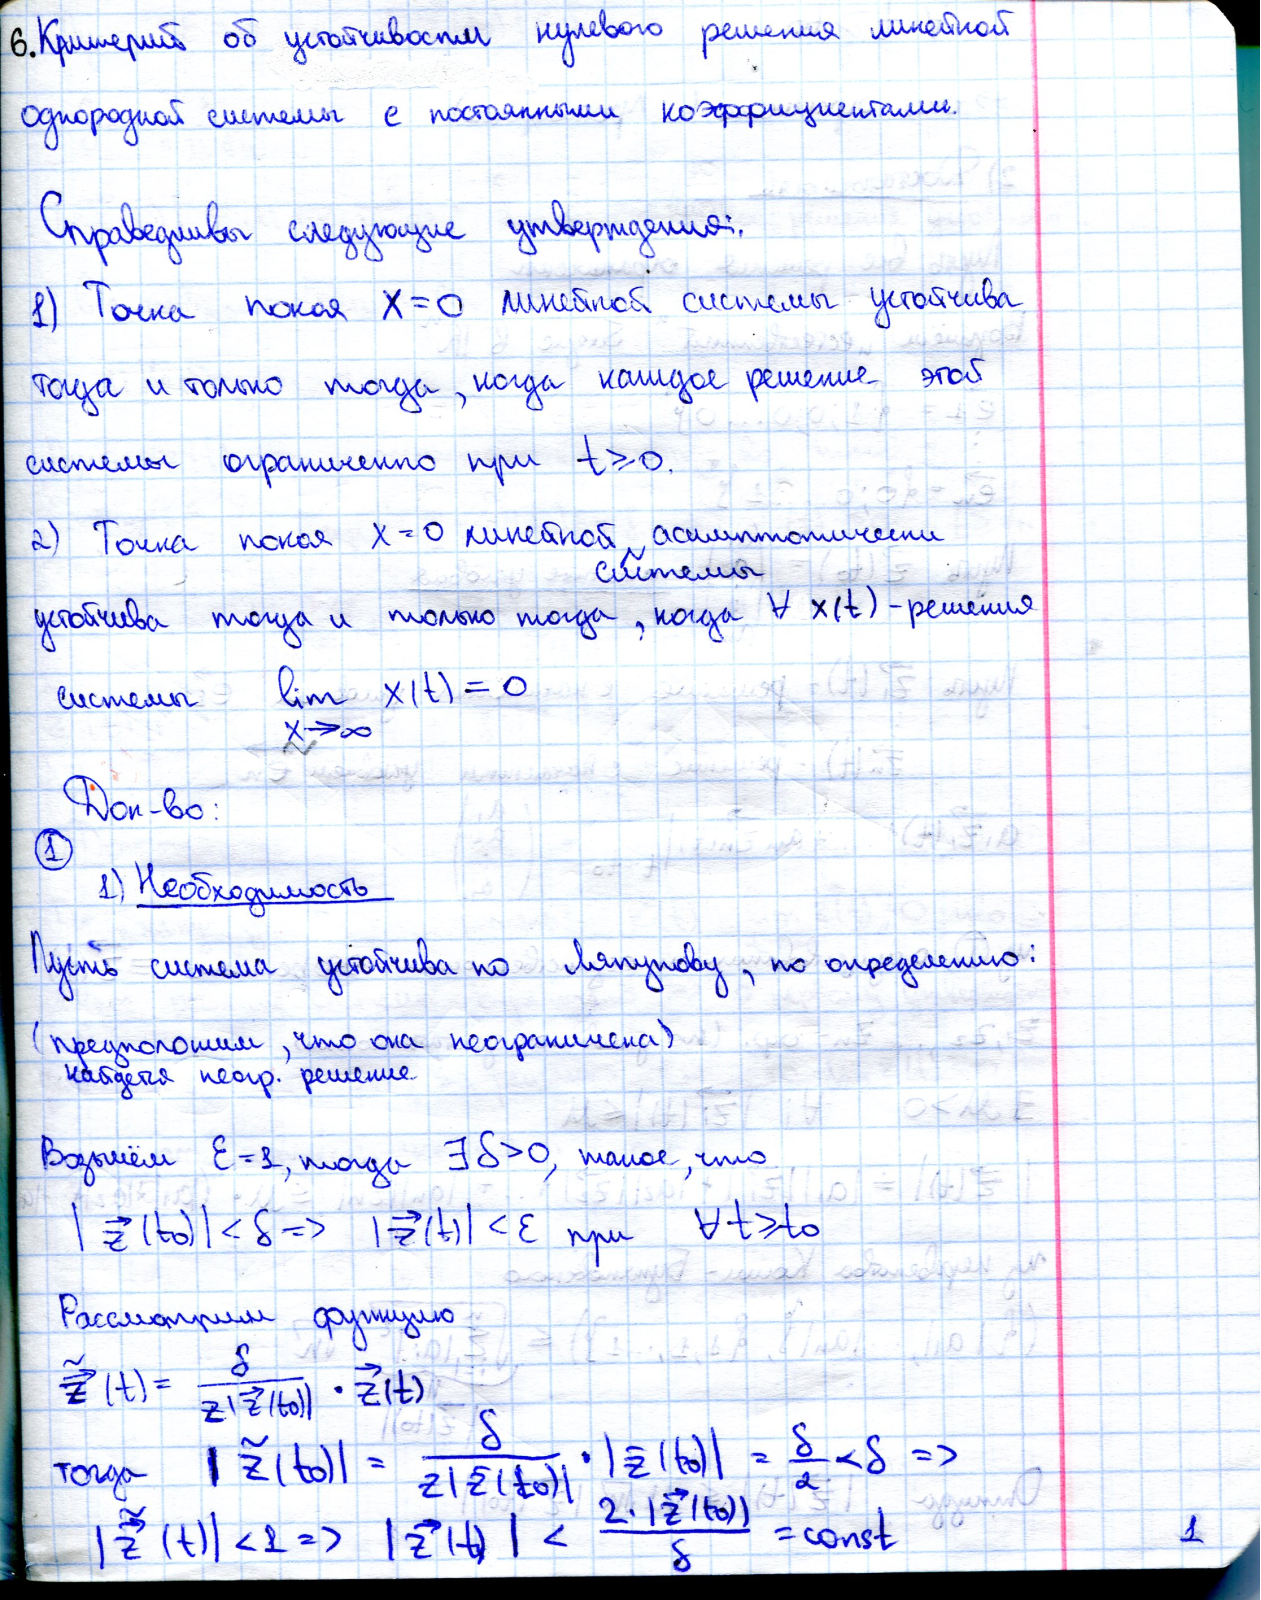 6. Критерий об устойчивости нулевого решения линейной
однородной системы с постоянными коэффициентами.
Справедливы следующие утверждения:
1) Точка покоя x=0 линейной системы устойчива
тогда и только тогда, когда каждое решение этой
системы ограниченно при t≥0.
2) Точка покоя x=0 линейной системы асимптотически
устойчива тогда и только тогда, когда ∀ x(t) - решения
системы lim x(t) = 0
x→∞
Док-во:
①
1) Необходимость
Пусть система устойчива по Ляпунову, по определению:
(предположим, что она неограничена)
найдется неогр. решение
Возьмём ε=1, тогда ∃ δ>0, такое, что
|z⃗(t₀)| < δ => |z⃗(t)| < ε при ∀ t≥t₀
Рассмотрим функцию
z̃⃗(t) = δ / 2|z⃗(t₀)| · z⃗(t)
тогда |z̃(t₀)| = δ / 2|z⃗(t₀)| · |z⃗(t₀)| = δ/2 < δ =>
|z̃⃗(t)| < 1 => |z⃗(t)| < 2·|z⃗(t₀)| / δ = const
1